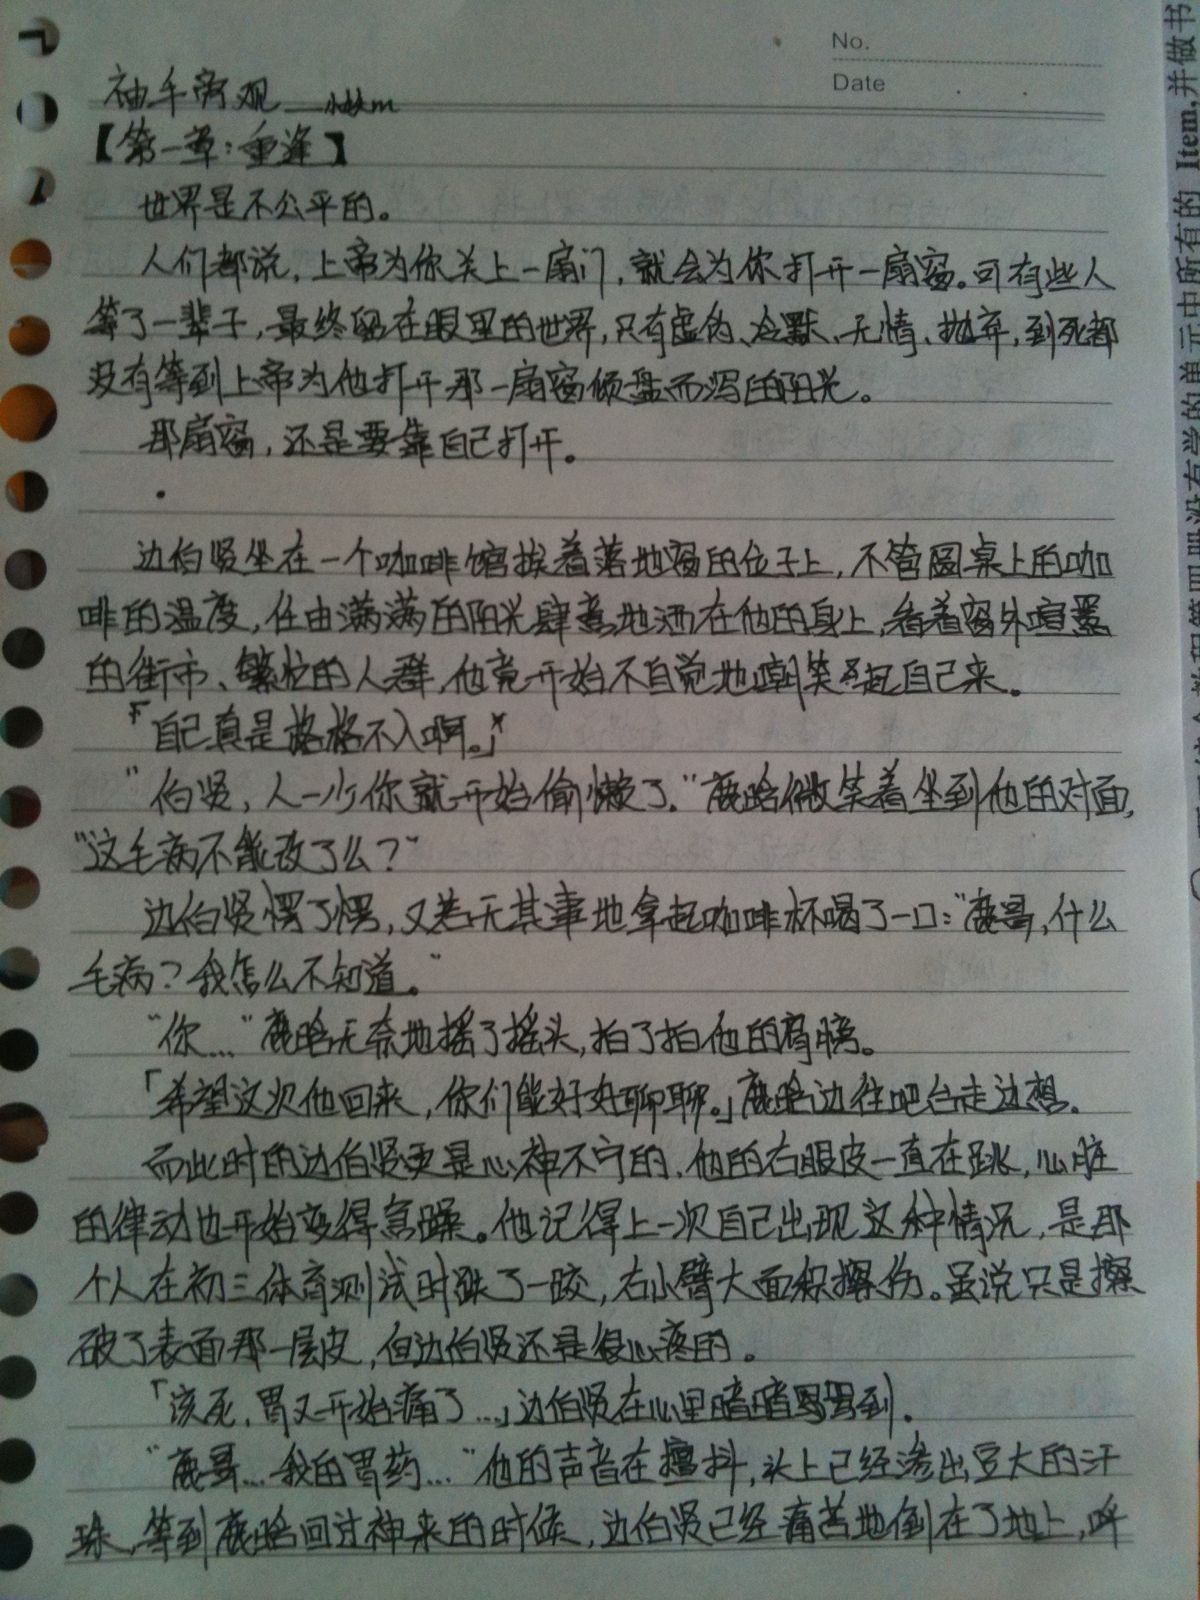 No.
Date
袖手旁观
【第一章：重逢】
世界是不公平的。
人们都说，上帝为你关上一扇门，就会为你打开一扇窗。可有些人
等了一辈子，最终留在眼里的世界，只有虚伪、冷默、无情、抛弃，到死都
没有等到上帝为他打开那一扇窗倾盘而泻的阳光。
那扇窗，还是要靠自己打开。
边伯贤坐在一个咖啡馆挨着落地窗的位子上，不管圆桌上的咖
啡的温度，任由满满的阳光肆意地洒在他的身上，看着窗外喧嚣
的街市、繁忙的人群，他竟开始不自觉地嘲笑起自己来。
「自己真是格格不入啊。」
“伯贤，人一少你就开始偷懒了。”鹿晗微笑着坐到他的对面，
“这毛病不能改了么？”
边伯贤愣了愣，又若无其事地拿起咖啡杯喝了一口：“鹿哥，什么
毛病？我怎么不知道。”
“你...”鹿晗无奈地摇了摇头，拍了拍他的肩膀。
「希望这次他回来，你们能好好聊聊。」鹿晗边往吧台走边想。
而此时的边伯贤更是心神不宁的，他的右眼皮一直在跳，心脏
的律动也开始变得急躁。他记得上一次自己出现这种情况，是那
个人在初三体育测试时跌了一跤，右小臂大面积擦伤。虽说只是擦
破了表面那一层皮，但边伯贤还是很心疼的。
「该死，胃又开始痛了...」边伯贤在心里暗暗骂到。
“鹿哥...我的胃药...”他的声音在擅抖，头上已经渗出豆大的汗
珠，等到鹿晗回过神来的时候，边伯贤已经痛苦地倒在了地上，呼
Item,并做书
的单元中所有的